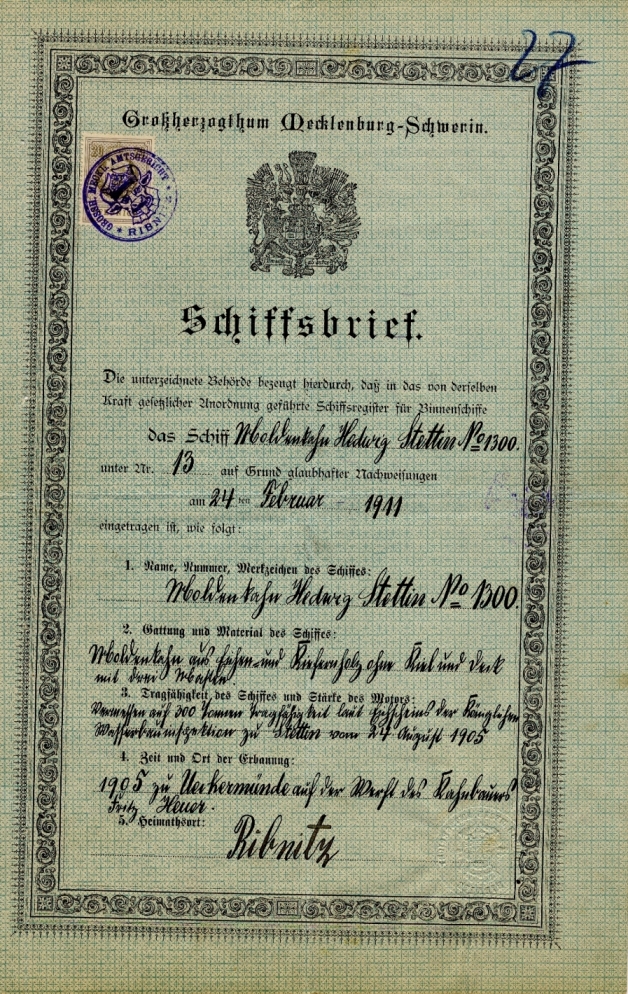 27
Großherzogthum Mecklenburg-Schwerin.
20
GROSSH. MECKL. AMTSGERICHT * RIBNITZ *
Schiffsbrief.
Die unterzeichnete Behörde bezeugt hierdurch, daß in das von derselben
Kraft gesetzlicher Anordnung geführte Schiffsregister für Binnenschiffe
das Schiff Moldenkahn Hedwig Stettin No 1300.
unter Nr. 13 auf Grund glaubhafter Nachweisungen
am 24 ten Februar – 1911
eingetragen ist, wie folgt:
1. Name, Nummer, Merkzeichen des Schiffes:
Moldenkahn Hedwig Stettin No 1300.
2. Gattung und Material des Schiffes:
Moldenkahn aus Eichen- und Kiefernholz ohne Kiel und Deck
mit drei Masten.
3. Tragfähigkeit des Schiffes und Stärke des Motors:
Vermessen auf 300 Tonnen Tragfähigkeit laut Eichscheins der Königlichen
Wasserbauinspektion zu Stettin vom 24 August 1905
4. Zeit und Ort der Erbauung:
1905 zu Ueckermünde auf der Werft des Kahnbauers
Fritz Heuer.
5. Heimathsort:
Ribnitz